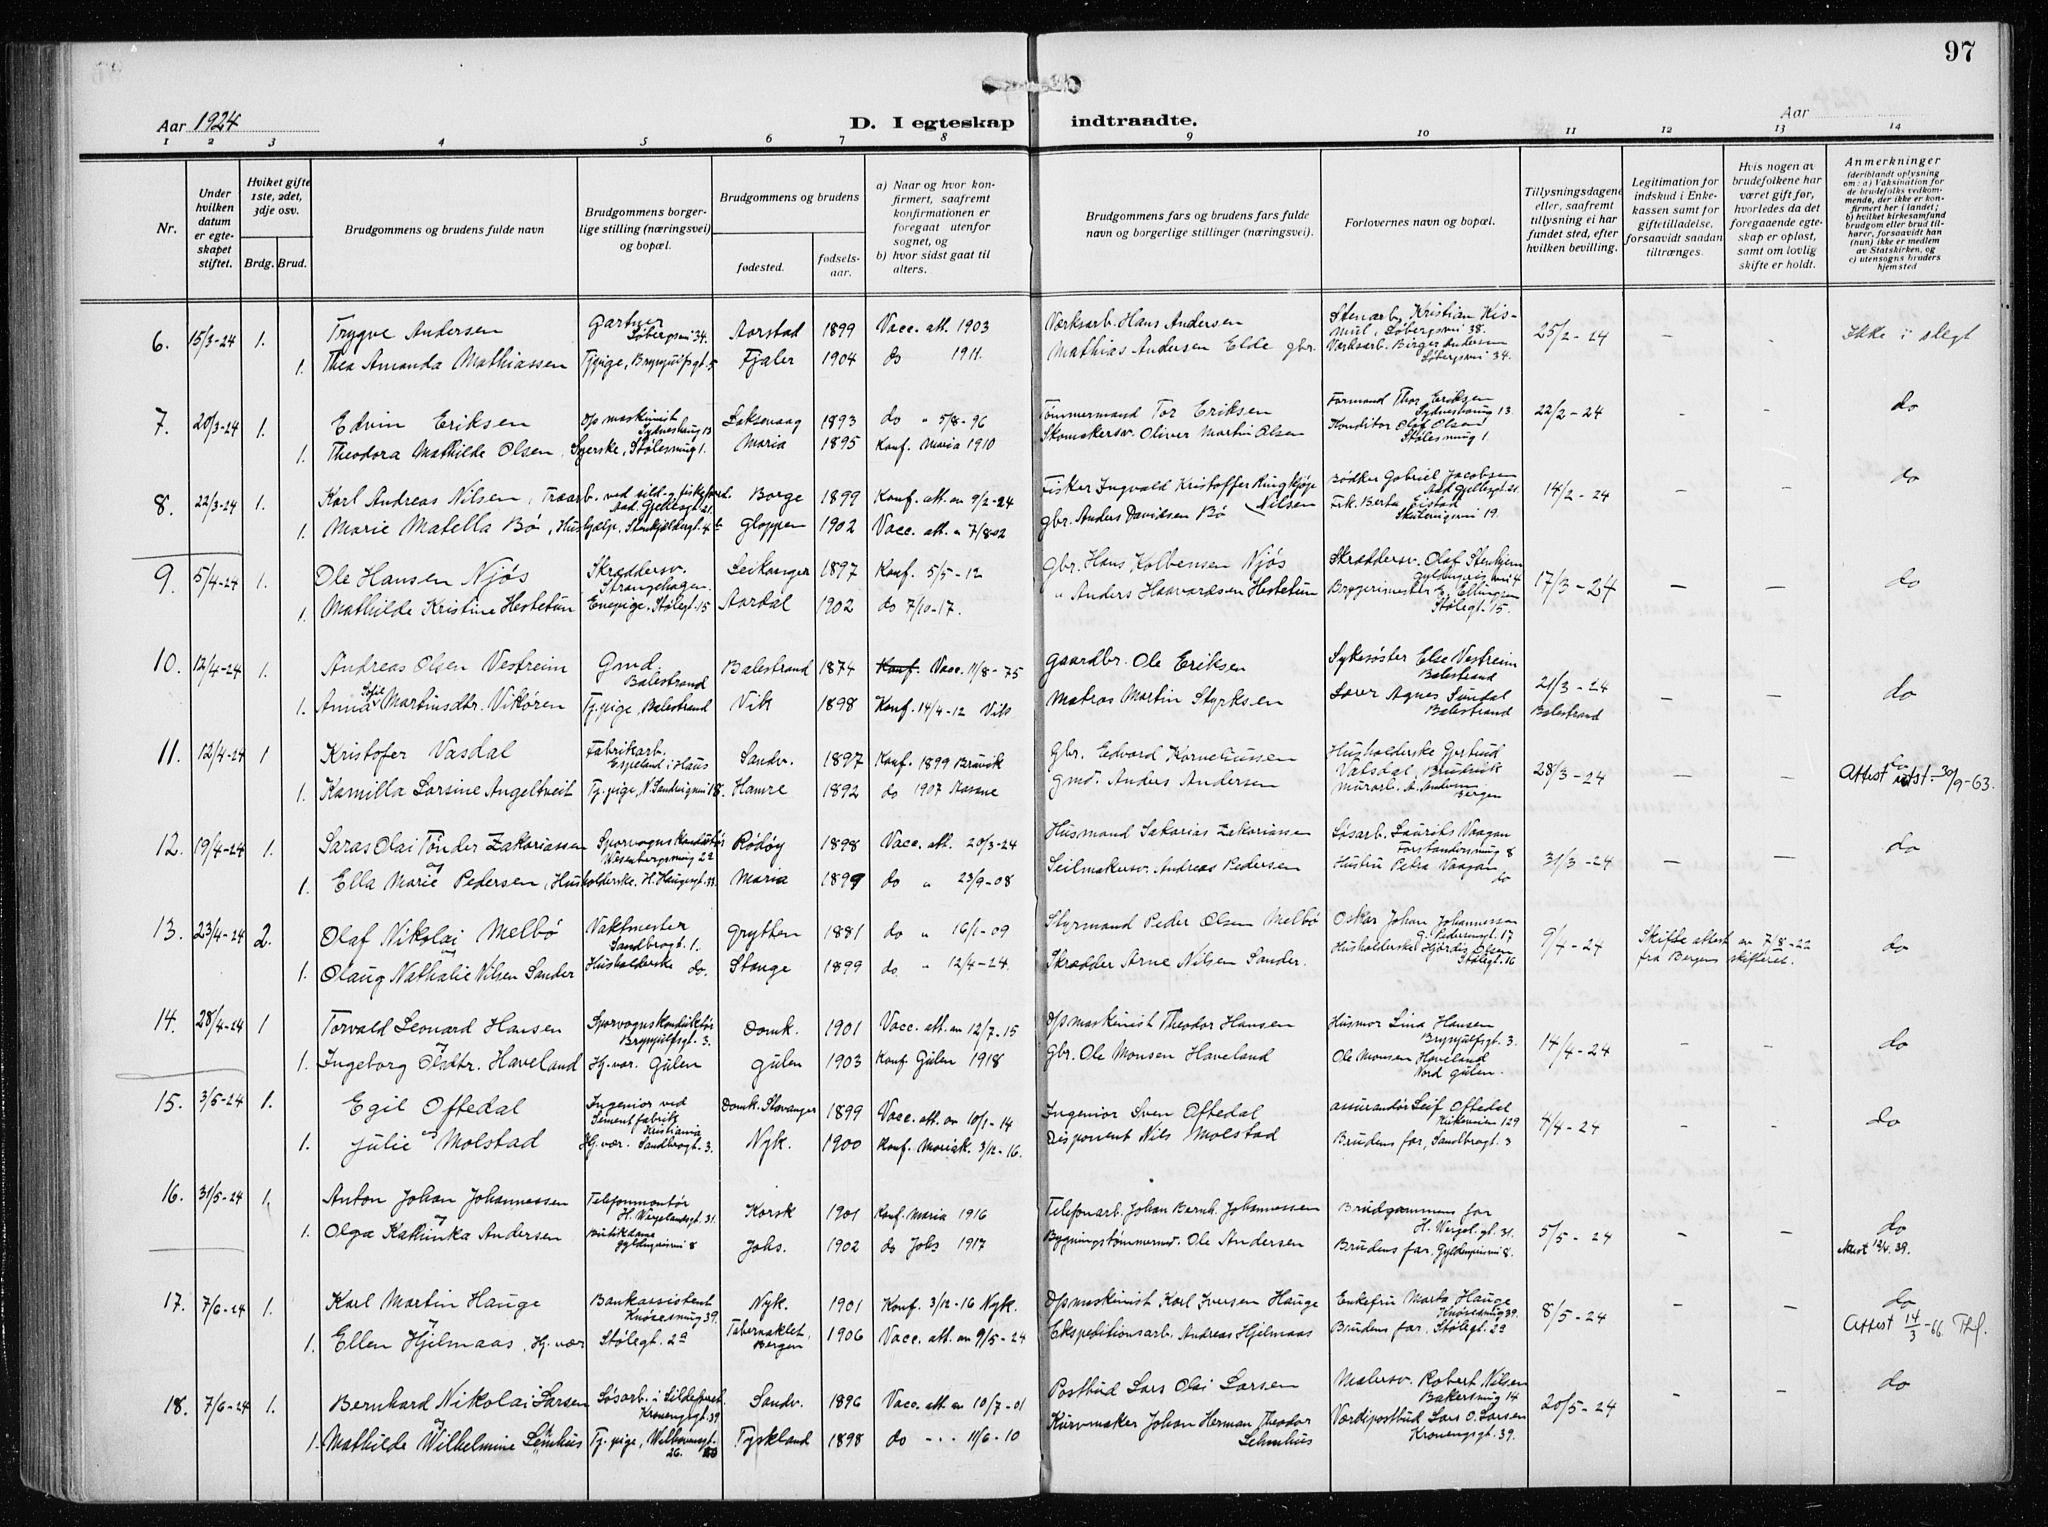 97
Aar 1924
D. I egteskap indtraadte.
Aar
1 2 3 4 5 6 7 8 9 10 11 12 13 14
Nr.
Under hvilken datum er egteskapet stiftet.
Hviket gifte 1ste, 2det, 3dje osv.
Brdg. Brud.
Brudgommens og brudens fulde navn
Brudgommens borgerlige stilling (næringsvei) og bopæl.
Brudgommens og brudens
fødested.
fødselsaar.
a) Naar og hvor konfirmert, saafremt konfirmationen er foregaat utenfor sognet, og
b) hvor sidst gaat til alters.
Brudgommens fars og brudens fars fulde navn og borgerlige stillinger (næringsvei).
Forlovernes navn og bopæl.
Tillysningsdagene eller, saafremt tillysning ei har fundet sted, efter hvilken bevilling.
Legitimation for indskud i Enkekassen samt for giftetilladelse, forsaavidt saadan tiltrænges.
Hvis nogen av brudefolkene har været gift før, hvorledes da det foregaaende egteskap er opløst, samt om lovlig skifte er holdt.
Anmerkninger (deriblandt oplysning om: a) Vaksination for de brudefolks vedkommende, der ikke er konfirmert her i landet; b) hvilket kirkesamfund brudgom eller brud tilhører, forsaavidt han (hun) ikke er medlem av Statskirken, og c) utensogns bruders hjemsted
6. 15/3-24 1. Trygve Andersen Gartner Solbergsvei 34. Aarstad 1899 Vacc. att. 1903 Værksarb. Hans Andersen Stenarb. Kristian Kismul, Solbergsvei 38. 25/2-24 Ikke i slegt
1. Thea Amanda Mathiassen Tj.pige, Brynjulfsgt. 5 Fjaler 1904 do 1911. Mathias Andersen Elde gbr. Værksarb. Birger Andersen Solbergsvei 34.
7. 20/3-24 1. Edvin Eriksen D/p maskinist Sydneshaug 13 Laksevaag 1893 do " 5/8-96 Tømmermand Tor Eriksen Formand Thor Eriksen Sydneshaug 13. 22/2-24 - - do
1. Theodora Mathilde Olsen, Syerske, Stølesmug 1. Maria 1895 Konf. Maria 1910 Skomakersv. Oliver Martin Olsen Konditor Olaf Olsen Stølesmug 1
8. 22/3-24 1. Karl Andreas Nilsen, Traarb. ved sild- og fiskeford. Aad Gjellesgt. 21. Borge 1899 Konf. att. av 9/2-24 Fisker Ingvald Kristoffer Ringkjøp Nilsen Bødker Gabriel Jacobsen Aad Gjellesgt. 21. 14/2-24 - - do
1. Marie Matella Bø, Hushjælp, Stenkjellergt. 4b Gloppen 1902 Vacc. att. " 7/8-02 gbr. Anders Davidsen Bø Frk. Berta Eistad Skuteviksvei 19.
9. 5/4-24 1. Ole Hansen Njøs Skræddersv. Strangehagen. Leikanger 1897 Konf. 5/5-12 Gbr. Hans Kolbensen Njøs Skræddersv. Olaf Stenhjem Gyldenprisvei 4 17/3-24 - - do
1. Mathilde Kristine Hestetun Enepige, Stølegt. 15 Aardal 1902 do 7/10-17. " Anders Haavardsen Hestetun Bryggerimester E. Ellingsen Stølegt. 15.
10. 12/4-24 1. Andreas Olsen Vestreim Gmd. Balestrand Balestrand 1874 Konf. Vacc. 11/8-75 Gaardbr. Ole Eriksen Sykesøster Else Vestreim Balestrand 21/3-24 Balestrand - - do
1. Anna Sofie Martinsdtr. Vikøren Tj.pige, Balestrand Vik 1898 Konf. 14/4-12 Vik Matros Martin Styrksen Lærer Agnes Sundal Balestrand
11. 12/4-24 1 Kristofer Vasdal Fabrikarb. Espeland i Haus Sandv. 1897 Konf. 1899 Bruvik Gbr. Edvard Korneliussen Husholderske Gjertrud Vatsdal, Bruvik 28/3-24 - - do
1. Kamilla Larsine Angeltveit Tj.pige, N. Sandvigsvei 18. Hamre 1892 do 1907 Aasane Gmd. Anders Andersen Murarb. A. Andersen Bergen Attest utst. 30/9-63.
12. 19/4-24 1. Saras Olai Tønder Zakariassen Sporvognskonduktør Wesenbergsmug 22 Rødøy 1898 Vacc. att. 20/3-24 Husmand Sakarias Zakariassen Løsarb. Laurits Vaagan Forstandersmug 8 31/3-24 - - do
og
1. Ella Marie Pedersen, Husholderske, H. Haugesgt. 33. Maria 1899 do " 23/9-08 Seilmakersv. Andreas Pedersen Hustru Petra Vaagan do
13. 23/4-24 2. Olaf Nikolai Melbø Vaktmester Sandbrogt. 1. Grytten 1881 do " 16/1-09 Styrmand Peder Olsen Melbø Oskar Johan Johannessen G. Pedersensgt. 17 9/4-24 Skifte attest av 7/8-22 fra Bergens skifteret. do
og
1. Olaug Nathalie Nilsen Sander Husholderske do. Stange 1899 do " 12/4-24. Skrædder Arne Nilsen Sander. Husholderske Hjørdis Olsen Stølegt. 16
14. 28/4-24 1 Torvald Leonard Hansen Sporvognskonduktør Brynjulfsgt. 3. Domk. 1901 Vacc. att. av 12/7-15 D/p maskinist Theodor Hansen Husmor Lina Hansen Brynjulfsgt. 3. 14/4-24 - - do
og
1. Ingeborg Olsdtr. Haveland Hj.vær. Gulen Gulen 1903 Konf Gulen 1918 Gbr. Ole Monsen Haveland Ole Monsen Haveland Nord Gulen.
15. 3/5-24 1. Egil Oftedal Ingeniør ved Sementfabrik Kristiania Domk. Stavanger 1899 Vacc. att. av 10/1-14 Ingeniør Sven Oftedal Assurandør Leif Oftedal Kirkeveien 129 4/4-24 - - do
og
1. Julie Molstad Hj.vær. Sandbrogt. 3. Nyk. 1900 Konf. Mariak. 3/12-16. Disponent Nils Molstad Brudens far, Sandbrogt. 3
16. 31/5-24 1. Anton Johan Johannessen Telefonmontør H. Wergelandsgt. 31. Korsk 1901 Konf. Maria 1916 Telefonarb. Johan Bernh. Johannessen Brudgommens far H. Wergel. gt. 31. 5/5-24 - - do
og
1. Olga Kathinka Andersen Butikdame Gyldenprisvei 8 Johs. 1902 do Johs 1917 Bygningstømmermd. Ole Andersen Brudens far, Gyldenprisvei 8. Attest 12/4. 39.
17. 7/6-24 1. Karl Martin Hauge Bankassistent Knøsesmug 39. Nyk. 1901 Konf. 3/12-16 Nyk. D/p maskinist Karl Iversen Hauge Enkefru Marta Hauge Knøsesmug 39. 8/5-24 - - do
og
1. Ellen Hjelmaas, Hj.vær Stølegt. 2a Tabernaklet, Bergen 1906 Vacc. att. av 9/5-24 Ekspeditionsarb. Andreas Hjelmaas Brudens far, Stølegt. 2a Attest 14/3-66. Thf.
18. 7/6-24 1. Bernhard Nikolai Larsen Løsarb. i Sildeforret. Kroneng​sgt. 39 Sandv. 1896 Vacc. att av 10/7-01 Postbud Lars Olai Larsen Malersv. Robert Nilsen Bakersmug 14 20/5-24 - - do
og
1. Mathilde Wilhelmine Lemhus Tj.pige, Welhavensgt. 26. Tyskland 1898 do - - - 11/6-10 Kurvmaker Johan Herman Theodor Lehmhus Værdipostbud Lars O. Larsen Kronengsgt. 39.